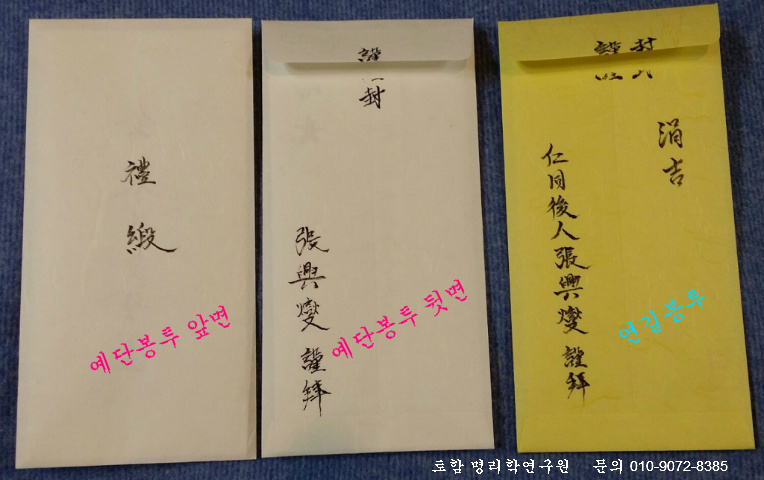 禮緞
예단봉투 앞면
謹封
張興燮 謹拜
예단봉투 뒷면
謹封
涓吉
仁同後人張興燮 謹拜
연길봉투
토함 명리학연구원 문의 010-9072-8385